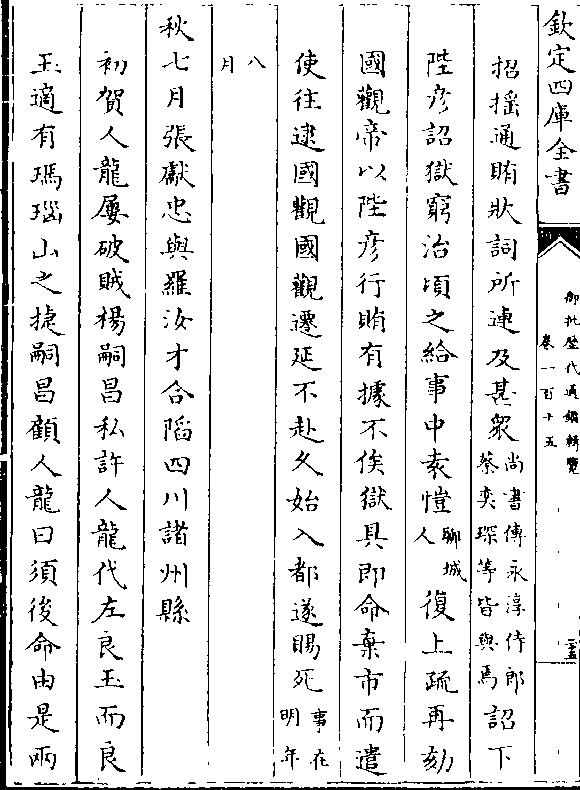 欽定四庫全書
御批歷代通鑑輯覽
卷一百十五
三五
招搖通賄狀詞所連及甚衆尚書傅永淳侍郎蔡奕琛等皆與焉詔下
陞彦詔獄窮治頃之給事中袁愷聊城人復上疏再劾
國觀帝以陞彦行賄有據不俟獄具即命棄市而遣
使往逮國觀國觀遷延不赴久始入都遂賜死事在明年
八月
秋七月張獻忠與羅汝才合䧟四川諸州縣
初賀人龍屢破賊楊嗣昌私許人龍代左良玉而良
玉適有瑪瑙山之捷嗣昌顧人龍曰須後命由是兩